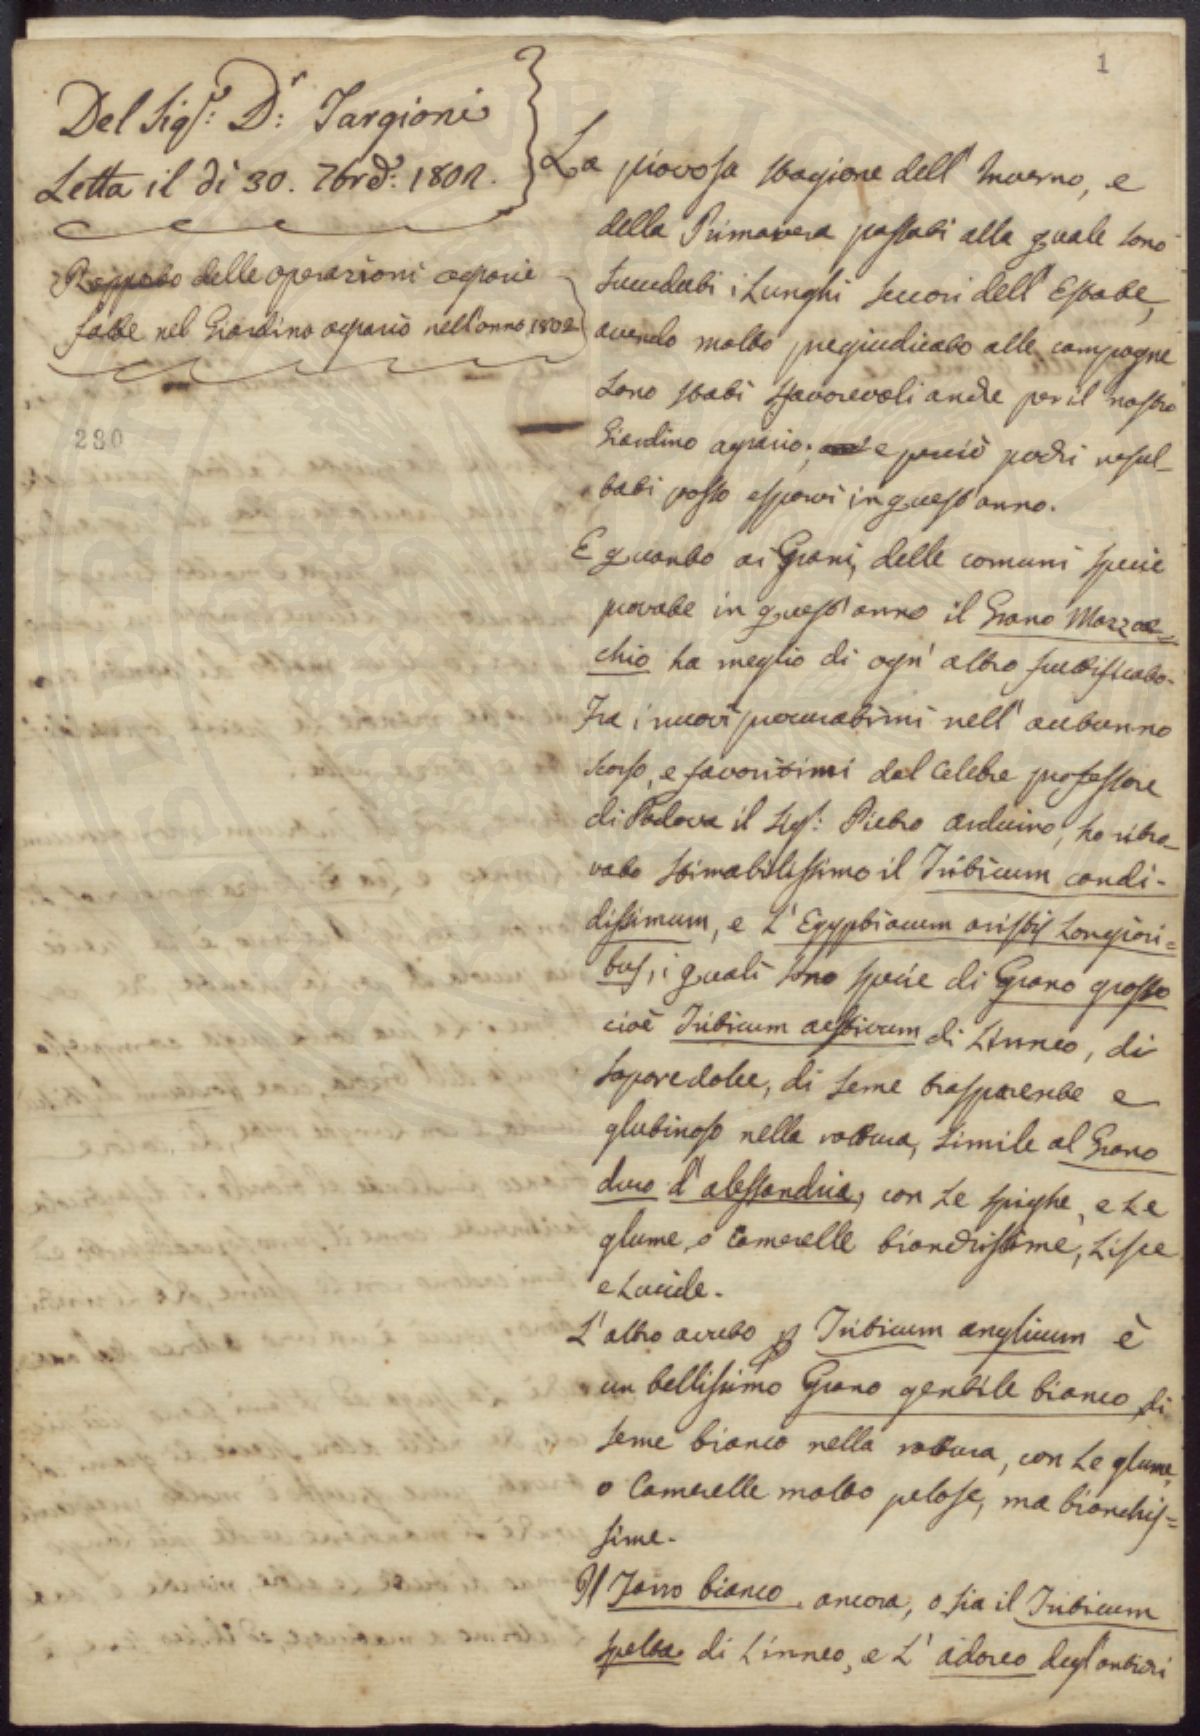 1
Del Sig.r D.r: Targioni
Letta il dì 30. 7brē: 1802.
Rapporto delle operazioni agrarie
fatte nel Giardino agrario nell'anno 1802
280
La piovosa stagione dell'Inverno, e
della Primavera passati alla quale sono
succeduti i Lunghi seccori dell'Estate,
avendo molto pregiudicato alle campagne
sono stati sfavorevoli anche per il nostro
Giardino agrario; e perciò pochi resul-
tati posso esporvi in quest'anno.
E quanto ai Grani, delle comuni specie
provate in quest'anno il Grano Mazzoc=
chio ha meglio di ogn'altro fruttificato.
Fra i nuovi procuratimi nell'autunno
scorso, e favoritimi dal celebre professore
di Padova il Sig.: Pietro arduino, ho ritro-
vato stimabilissimo il Triticum candi-
dissimum, e L'Egyptiacum aristis Longiori=
bus, i quali sono specie di Grano grosso
cioè Triticum aestivum di Linneo, di
sapore dolce, di seme trasparente e
glutinoso nella rottura, simile al Grano
duro d'alessandria, con Le spighe, e Le
glume, o Camerelle bianchissime, Liscie
e Lucide.
L'altro avuto p Triticum anglicum è
un bellissimo Grano gentile bianco, di
seme bianco nella rottura, con Le glume,
o Camerelle molto pelose, ma bianchis=
sime.
Il Farro bianco, ancora, o sia il Triticum
spelta di Linneo, e L'adoreo degl'antichi